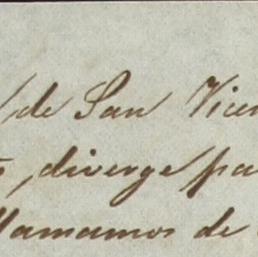 de San Vicen
, diverge pa
llamamos de